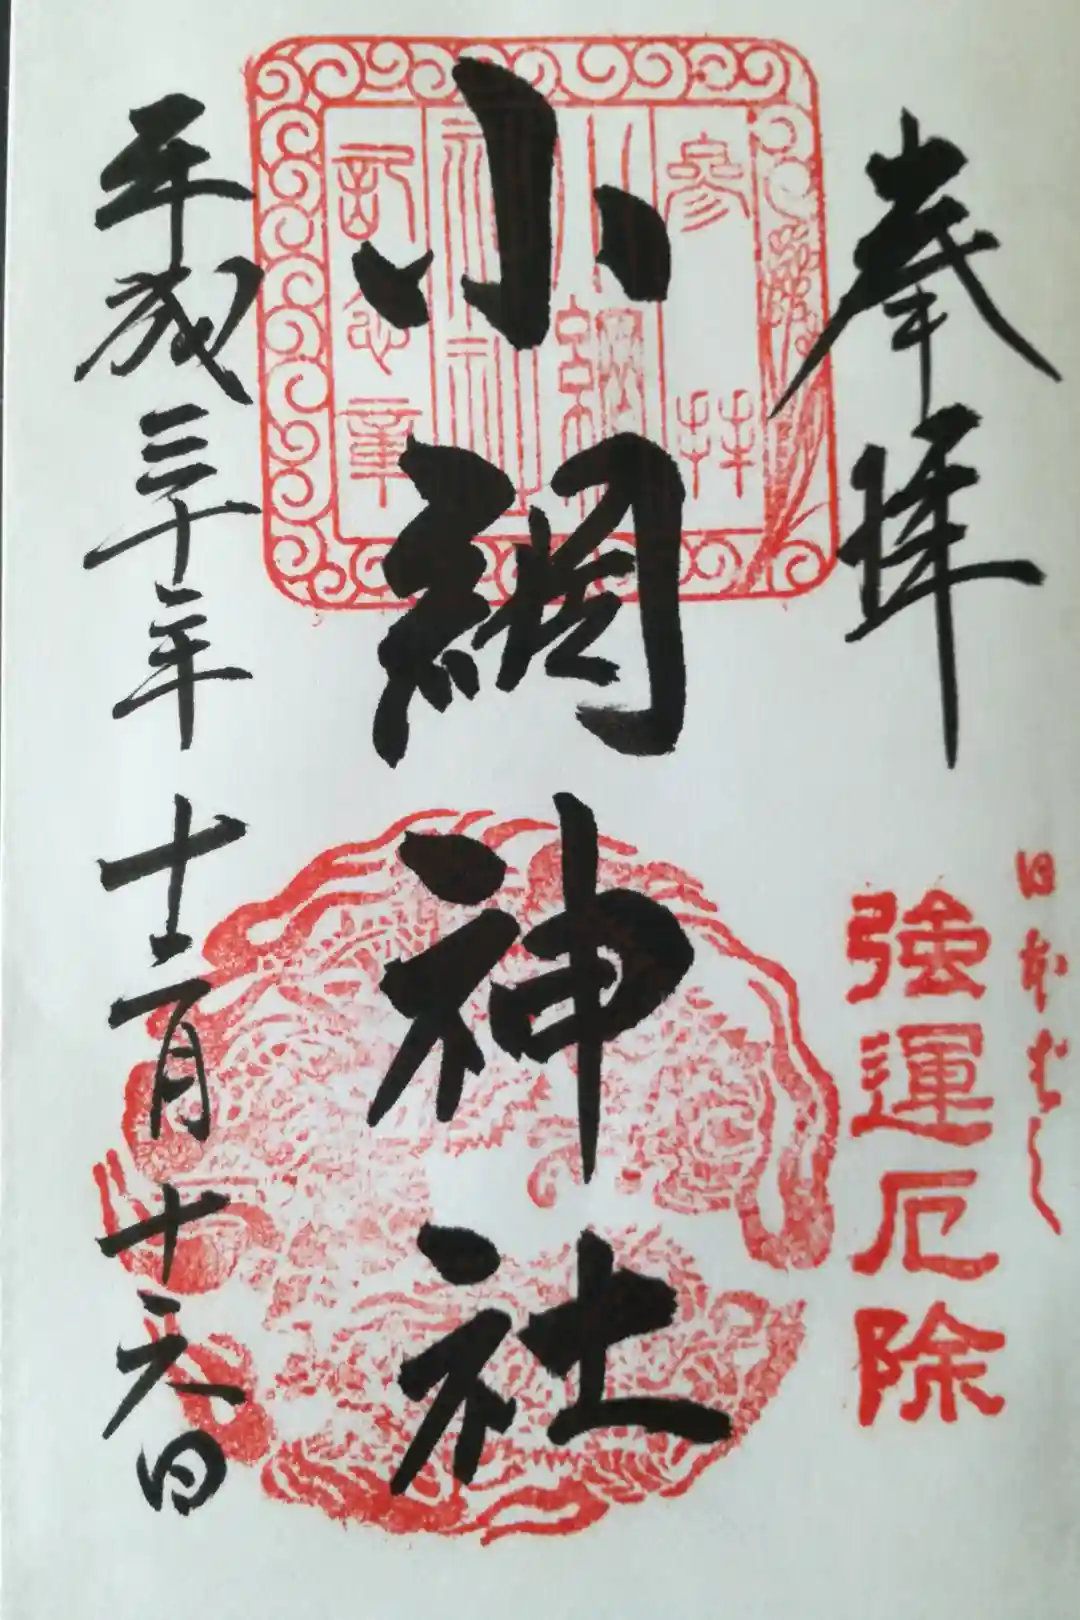 奉拝
日本ばし
強運厄除
参拝
小網
神社
記念章
小網神社
平成三十年十二月十六日